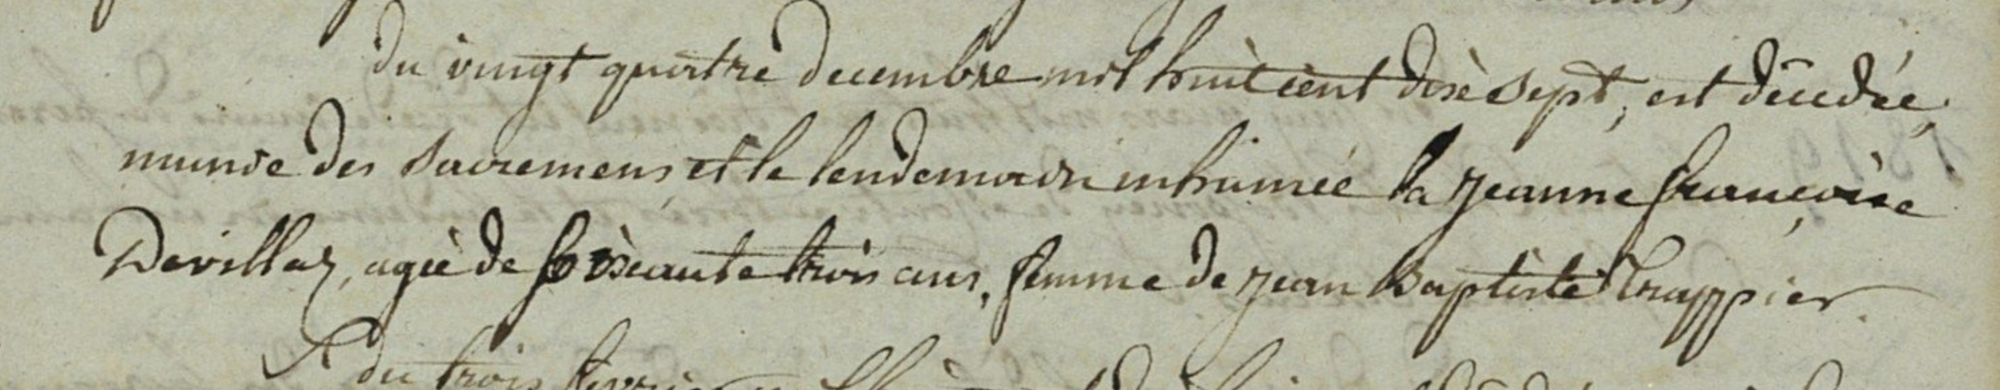 du vingt quatre decembre mil huit cent dixè sept, est décedée
munie des sacremens et le lendemain inhumée la jeanne françoise
Devillaz, agée de soixante trois ans, femme de jean Baptiste Trappier
du trois fevrier